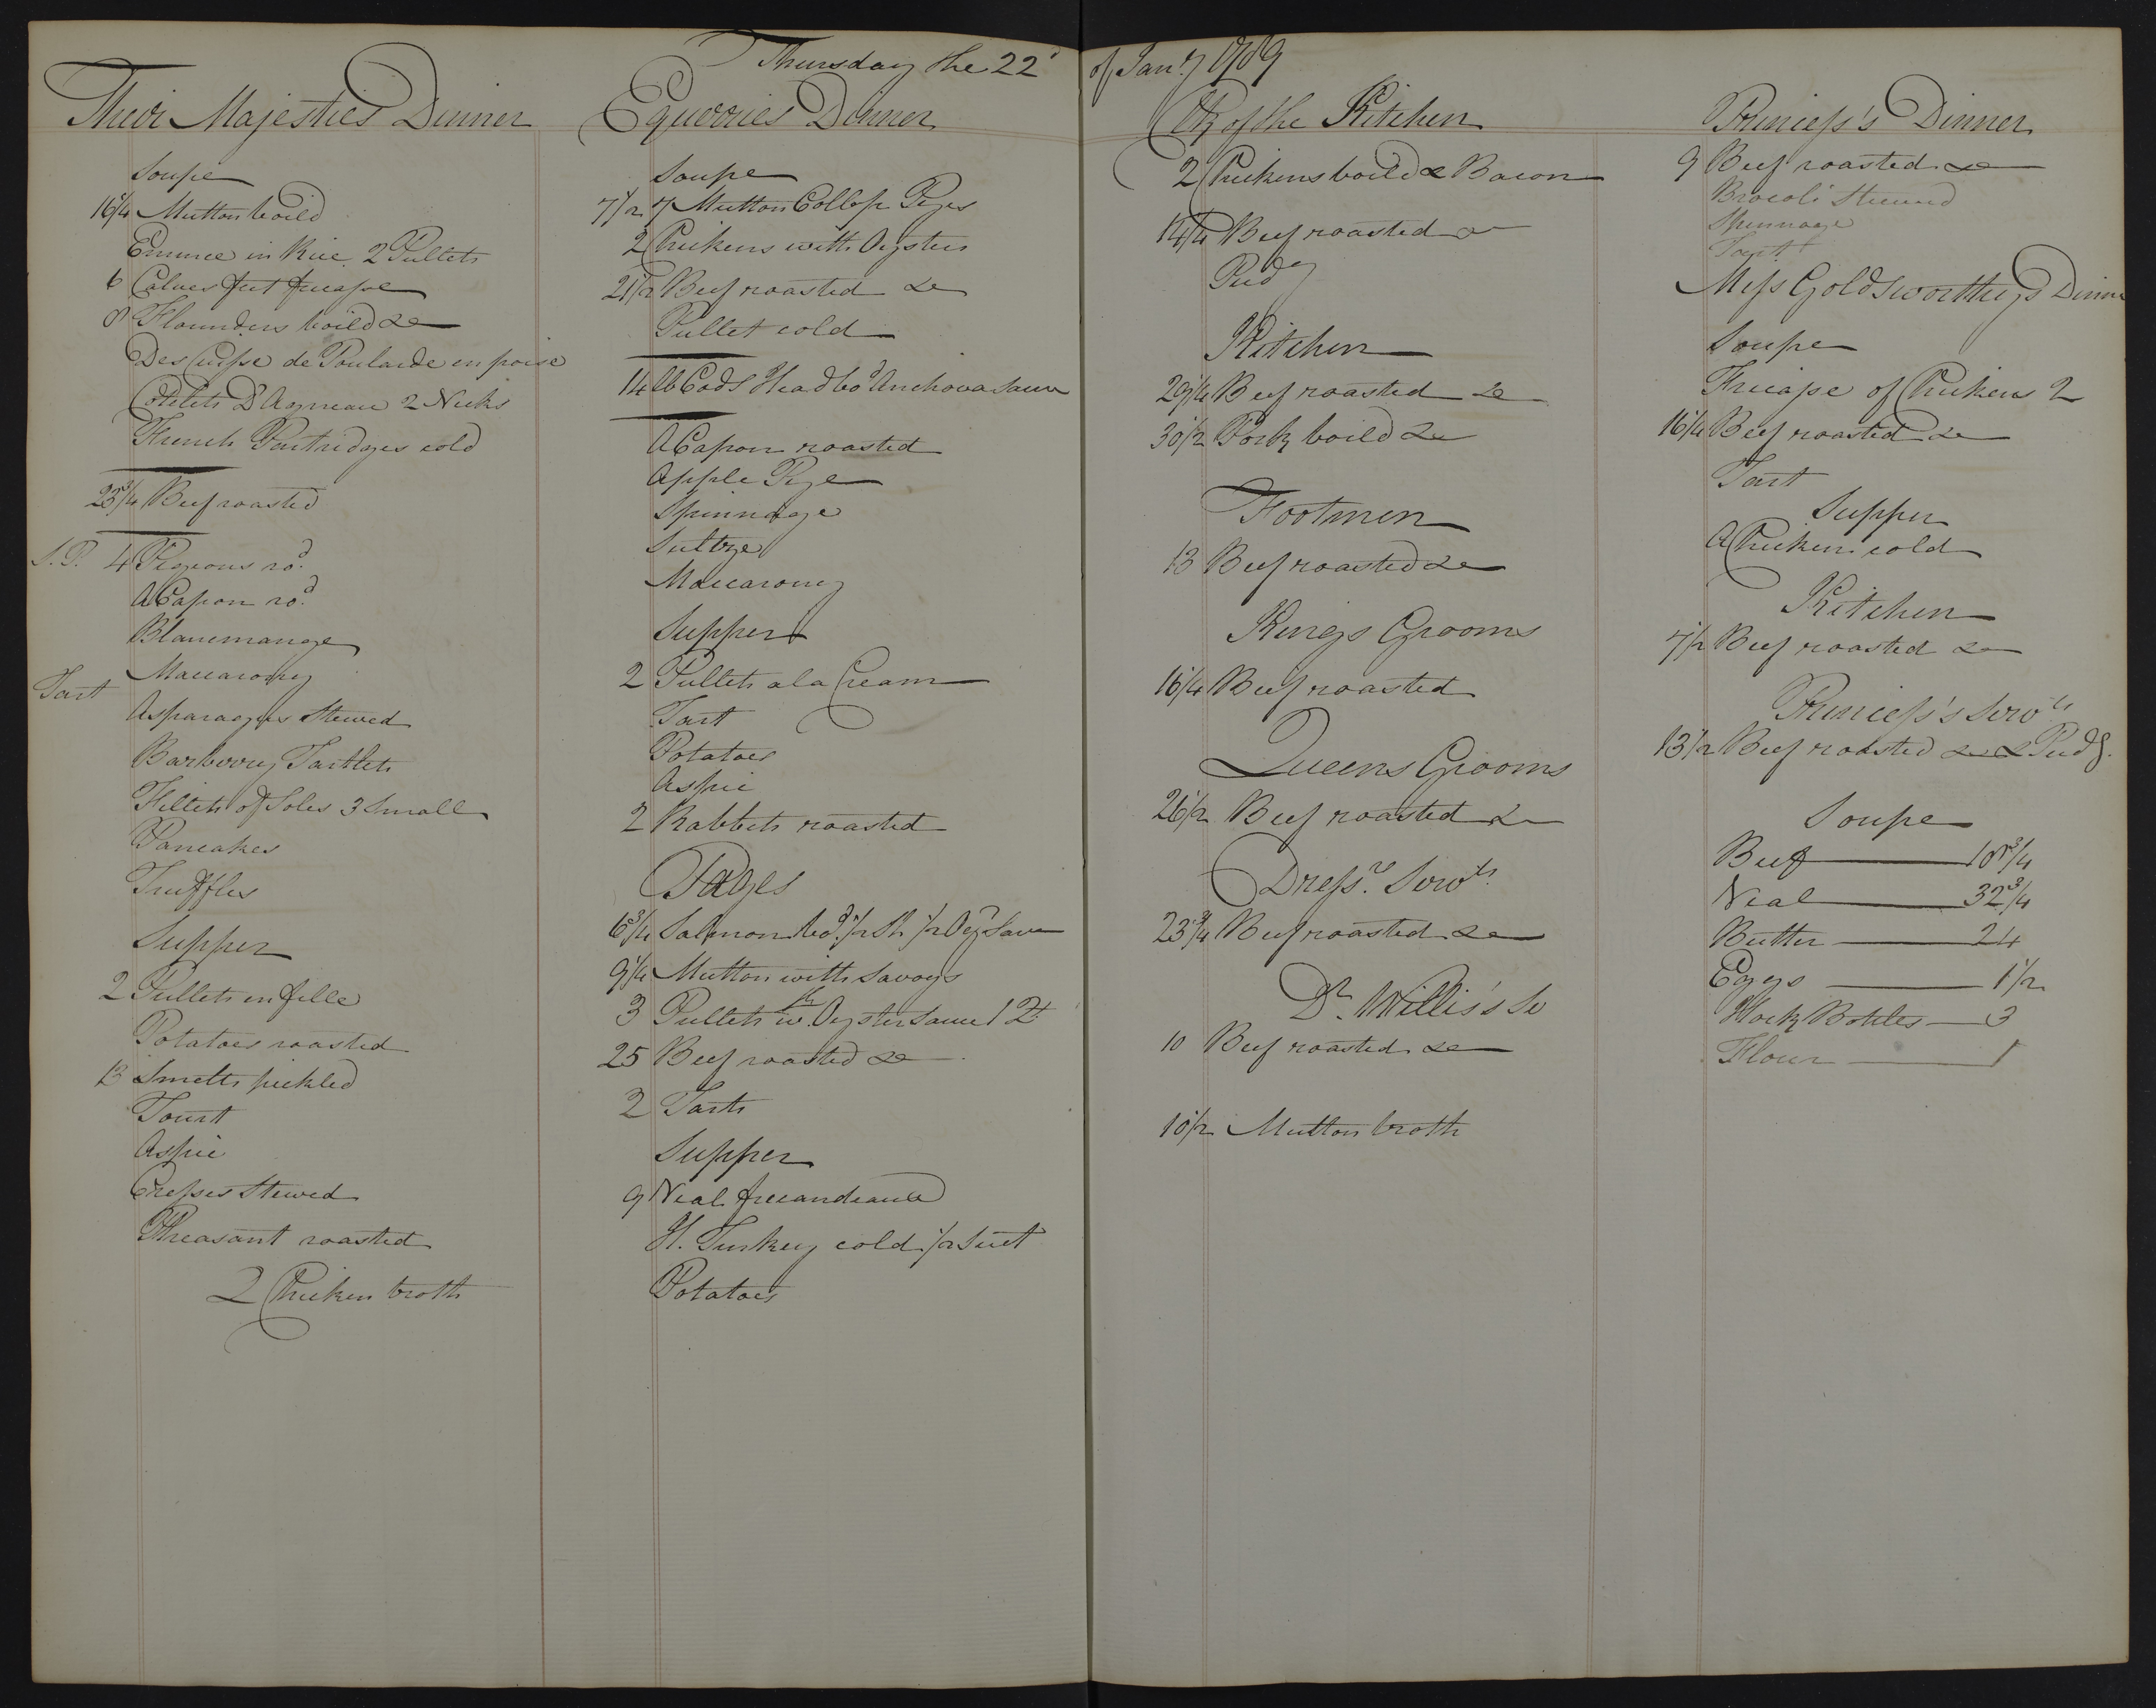 Thursday the 22d of Jany 1789
Their Majesties Dinner
Soupe
16 1/4 Mutton boild
Emmce in Rice 2 Pullets
6 Calves feet fricasse
8 Flounders boild &c
Des Cuisse de Poularde en poise
Cotelets D'Agneau 2 Necks
French Partridges cold
23 3/4 Beef roasted
S. P. 4 Pigeons rod
A Capon rod
Blancmange
Maccarony
Tart
Asparagus Stewed
Barberry Tartlets
Fillets of Soles 3 Small
Pancakes
Truffles
Supper
2 Pullets en fille
Potatoes roasted
13 Smelts pickled
Tourt
Aspic
Cresses Stewed
Pheasant roasted
2 Chicken broth
Equerries Dinner
Soupe
7 1/2 7 Mutton Collop Pyes
2 Chickens with Oysters
21 1/2 Beef roasted &c
Pullet cold
14 lb Cods Head bod Anchova Sauce
A Capon roasted
Apple Pye
Spinnage
Sultze
Maccarony
Supper
2 Pullets a la Cream
Tart
Potatoes
Aspic
2 Rabbets roasted
Pages
6 3/4 Salmon bod 1/2 Sh 1/2 Oyr Sauce
9 1/4 Mutton with Savoys
3 Pullets wth Oyster Sauce 1 Qt
25 Beef roasted &c
2 Tarts
Supper
9 Veal fricandeaux
H. Turkey cold 1/2 Suet
Potatoes
Clk of the Kitchen
2 Chickens boild & Bacon
14 1/4 Beef roasted &c
Pudg
Kitchen
29 1/4 Beef roasted &c
30 1/2 Pork boild &c
Footmen
13 Beef roasted &c
Kings Grooms
16 1/4 Beef roasted
Queens Grooms
26 1/2 Beef roasted &c
Dressrs Servts
23 3/4 Beef roasted &c
Dr Willis's Se
10 Beef roasted &c
10 1/2 Mutton broth
Princess's Dinner
9 Beef roasted &c
Brocoli Stewed
Spinnage
Tart
Miss Goldsworthys Dinner
Soupe
Fricasse of Chickens 2
16 1/4 Beef roasted &c
Tart
Supper
A Chicken cold
Kitchen
7 1/2 Beef roasted &c
Princess's Servts
13 1/2 Beef roasted &c & Pudg
Soupe
Beef 18 3/4
Veal 32 3/4
Butter 24
Eggs 1 1/2
Hock Bottles 3
Flour 1